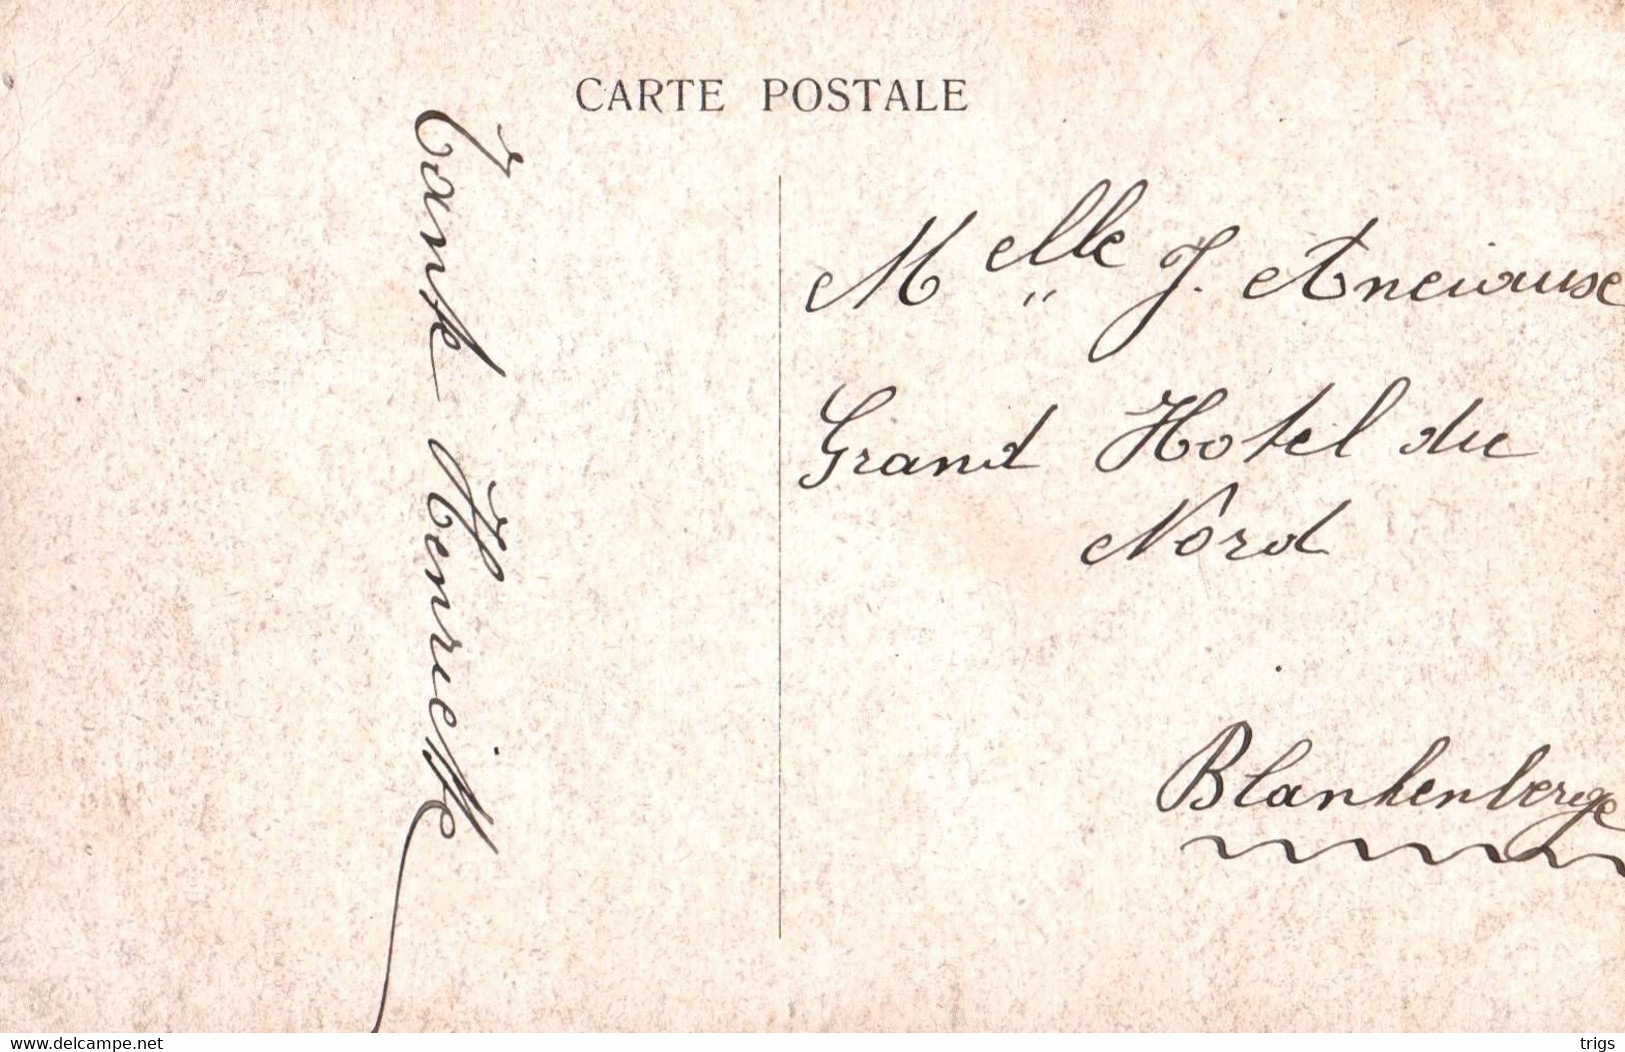 CARTE POSTALE
Tante Henriette
Melle J. Anciause
Grand Hotel du
Nord
Blankenberge
www.delcampe.net
trigs